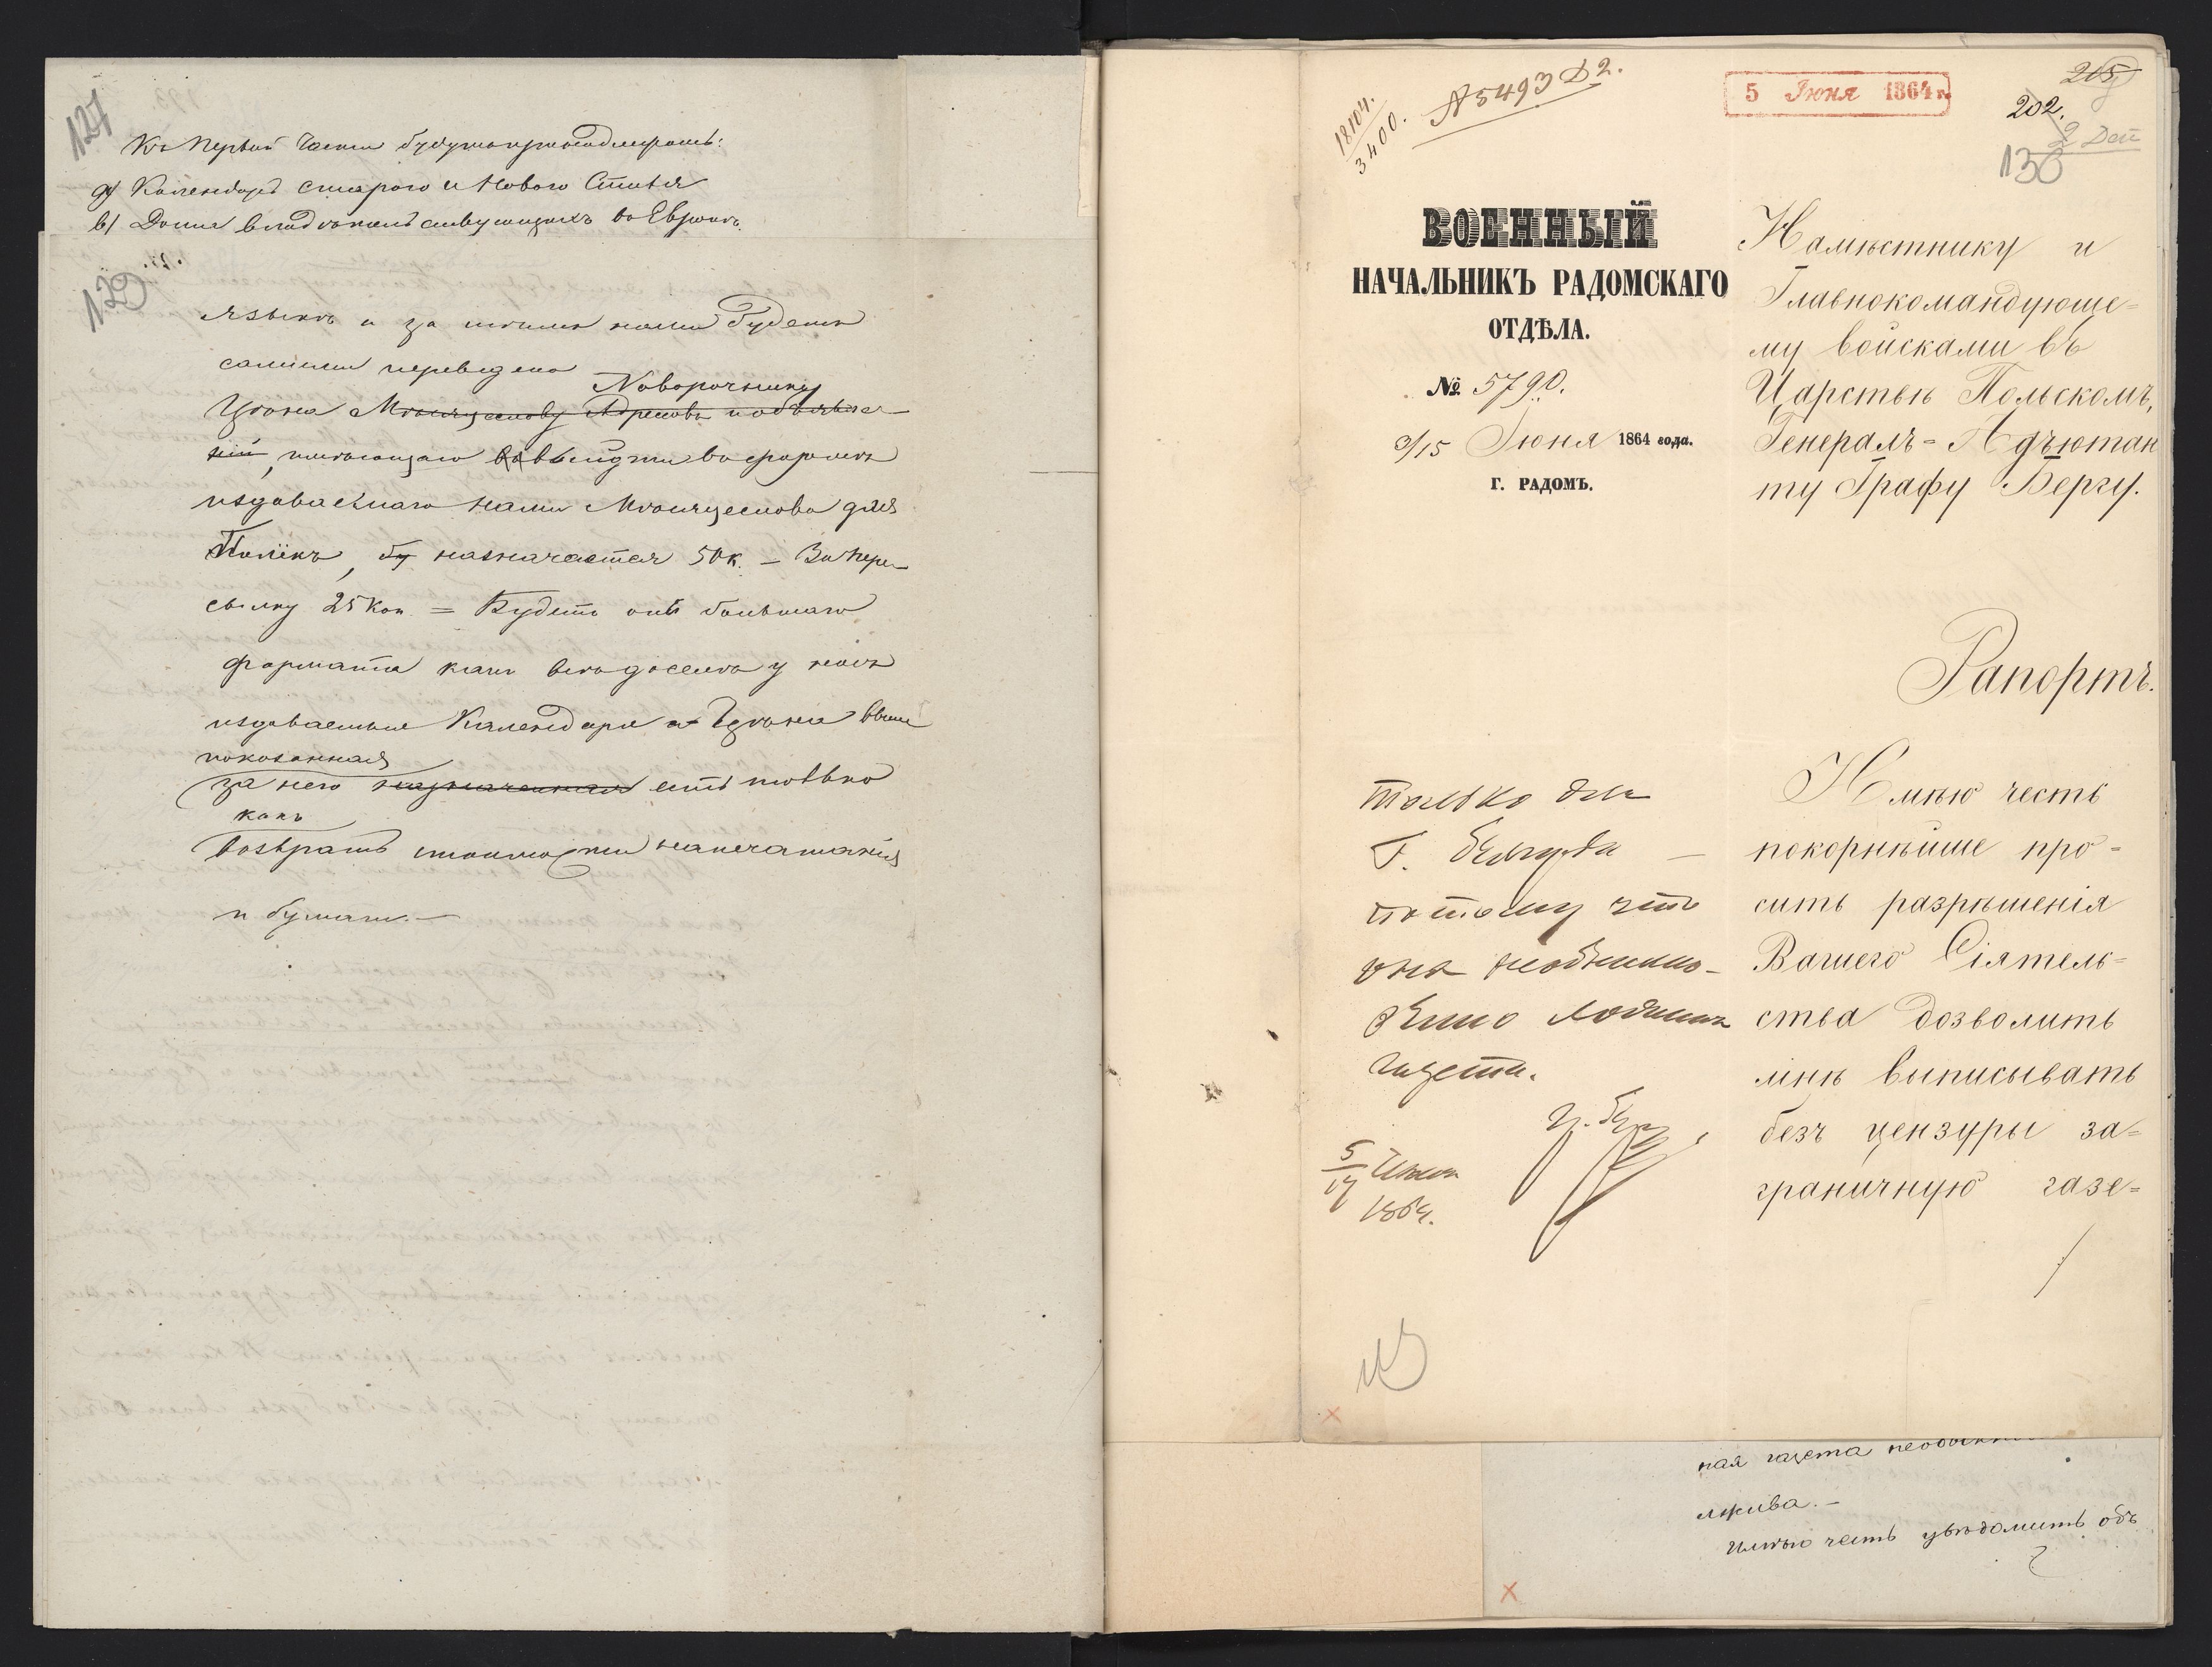 127
Къ первой части будутъ
а) Календарь стараго и Новаго Стиля
в) Дома владѣтельствующихъ въ Европѣ.
129
языкъ и за тѣмъ нами будетъ
самими переведено
Новорочнику
Цѣна Мѣсяцеслову Адресовъ и объявле-
ній, имѣющаго выйдти въ формѣ
издаваемаго нами Мѣсяцеслова для
назначается 50 к. — За пере-
сылку 25 коп. = Будетъ онъ большаго
формата какъ всѣ доселѣ у насъ
издаваемые Календари а Цѣна выше
показанная
за него назначенная есть только
какъ
возвратъ стоимости напечатанія
и бумаги. —
18104.
3400.
№ 5493 Д 2.
5 Іюня 1864 г.
215
202.
2 Деп
130
ВОЕННЫЙ
НАЧАЛЬНИКЪ РАДОМСКАГО
ОТДѢЛА.
№ 5790.
3/15 Іюня 1864 года.
Г. РАДОМЪ.
Намѣстнику и
Главнокомандующе-
му войсками въ
Царствѣ Польскомъ,
Генералъ-Адъютан
ту Графу Бергу.
Рапортъ.
Имѣю честь
покорнѣйше про-
сить разрѣшенія
Вашего Сіятель-
ства дозволить
мнѣ выписывать
безъ цензуры за-
граничную газе-
только для
Г.
потому что
она
газета.
5/17 Іюня
1864.
ная газета
лжива. —
Имѣю честь увѣдомить объ